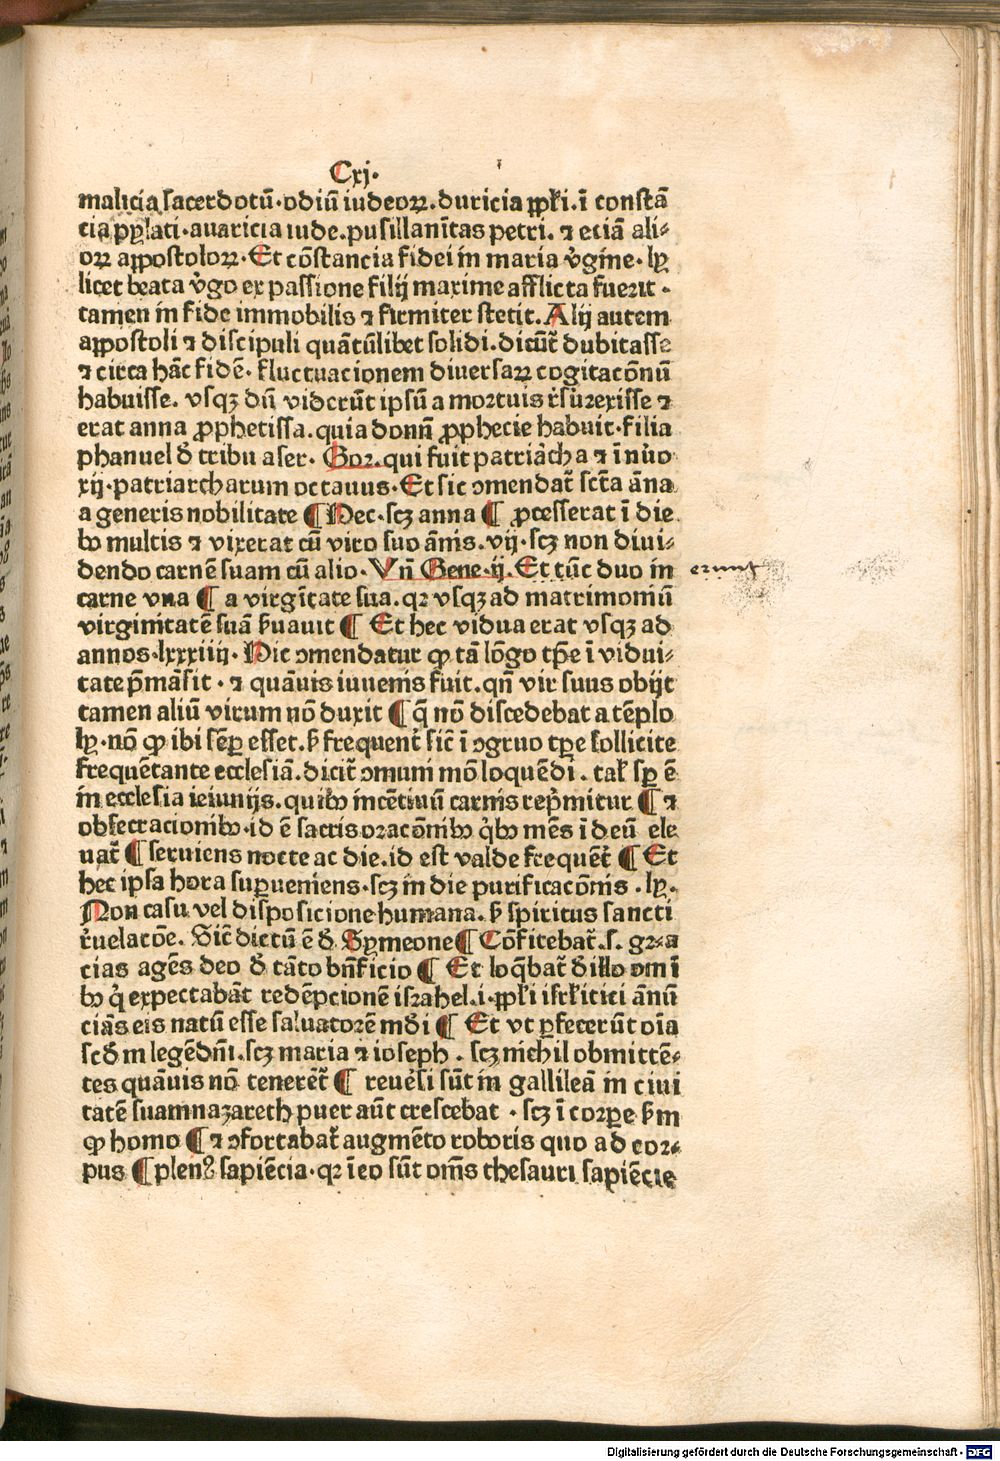 Cxj.
malicia sacerdotū. odiū iudeoꝝ. duricia ppl̄i. ī constā
cia pylati. auaricia iude. pusillanītas petri. ⁊ eciā ali⸗
oꝝ appostoloꝝ. Et cōstancia fidei in maria v̄gine. lꝫ
licet beata v̄go ex passione filij maxime afflicta fuerit .
tamen in fide immobilis ⁊ firmiter stetit. Alij autem
appostoli ⁊ discipuli quātūlibet solidi. dicūt̄ dubitasse
⁊ circa hāc fidē. fluctuacionem diuersaꝝ cogitacōnū
habuisse. vsqꝫ dū viderūt ipsū a mortuis r̄surexisse ⁊
erat anna ꝓphetissa. quia donū ꝓphecie habuit. filia
phanuel d̄ tribu aser. Gor. qui fuit patriarcha ⁊ ī nūo
xij. patriarcharum octauus. Et sic ↄmendat̄ sct̄a āna
a generis nobilitate ¶ Hec. scꝫ anna ¶ ꝓcesserat ī die
bꝰ multis ⁊ vixerat cū viro suo ānis. vij. scꝫ non diui⸗
dendo carnē suam cū alio. Vn̄ Gene. ij. Et tūc duo in erunt
carne vna ¶ a virgītate sua. qꝛ vsqꝫ ad matrimoniū
virginitatē suā ẜuauit ¶ Et hec vidua erat vsqꝫ ad
annos. lxxxiiij. Hic ↄmendatur ꝙ tā lōgo tp̄e ī vidui⸗
tate ꝑmāsit . ⁊ quāuis iuuenis fuit. qn̄ vir suus obijt
tamen aliū virum nō duxit ¶ q̄ nō discedebat a tēplo
lꝫ. nō ꝙ ibi sēꝑ esset. ẜ frequent̄ sic̄ ī ↄgruo tꝑe sollicite
frequētante ecclesiā. dicit̄ ↄmuni mō loquēdi . tal̄ sꝑ ē
in ecclesia ieiunijs. quibꝰ incētiuū carnis rep̄mitur ¶ ⁊
obsecracionibꝰ. id ē sacris oracōnibꝰ q̄bꝰ mēs ī deū ele
uat̄ ¶ seruiens nocte ac die. id est valde frequēt̄ ¶ Et
hec ipsa hora suꝑueniens. scꝫ in die purificacōnis . lꝫ.
Non casu vel disposicione humana. ẜ spiritus sancti
r̄uelacōe. Sic̄ dictū ē d̄ Symeone ¶ Cōfitebat̄. s. gr⸗a
cias agēs deo d̄ tāto bn̄ficio ¶ Et loq̄bat̄ d̄ illo om̄i
bꝰ q̄ expectabāt redēpcionē israhel. i. ppl̄i isrl̄itici ānū
ciās eis natū esse saluatorē mūdi ¶ Et vt ꝑfecerūt oīa
scd̄m legē dn̄i. scꝫ maria ⁊ ioseph . scꝫ nichil obmittē⸗
tes quāuis nō tenerēt̄ ¶ reuēsi sūt in gallileā in ciui
tatē suam nazareth puer aūt crescebat . scꝫ ī corꝑe ẜm
ꝙ homo ¶ ⁊ ↄfortabat̄ augmēto roboris quo ad cor⸗
pus ¶ plenꝰ sapiēcia. qꝛ ī eo sūt om̄s thesauri sapiēcie
Digitalisierung gefördert durch die Deutsche Forschungsgemeinschaft - DFG